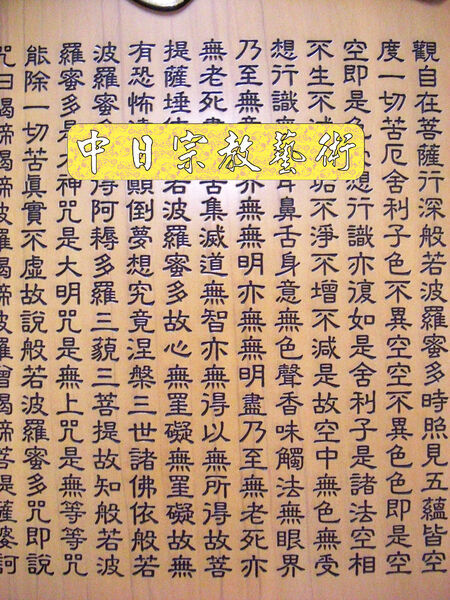 中日宗教藝術
觀自在菩薩行深般若波羅蜜多時照見五蘊皆空
度一切苦厄舍利子色不異空空不異色色即是空
空即是色想行識亦復如是舍利子是諸法空相
不生不滅垢不淨不增不減是故空中無色無受
想行識無耳鼻舌身意無色聲香味觸法無眼界
乃至無意無無明亦無無明盡乃至無老死亦
無老死盡苦集滅道無智亦無得以無所得故菩
提薩埵依若波羅蜜多故心無罣礙無罣礙故無
有恐怖顛倒夢想究竟涅槃三世諸佛依般若
波羅蜜多得阿耨多羅三藐三菩提故知般若波
羅蜜多是神咒是大明咒是無上咒是無等等咒
能除一切苦眞實不虛故說般若波羅蜜多咒即說
咒曰揭諦揭諦波羅揭諦波羅僧揭諦菩提薩婆訶